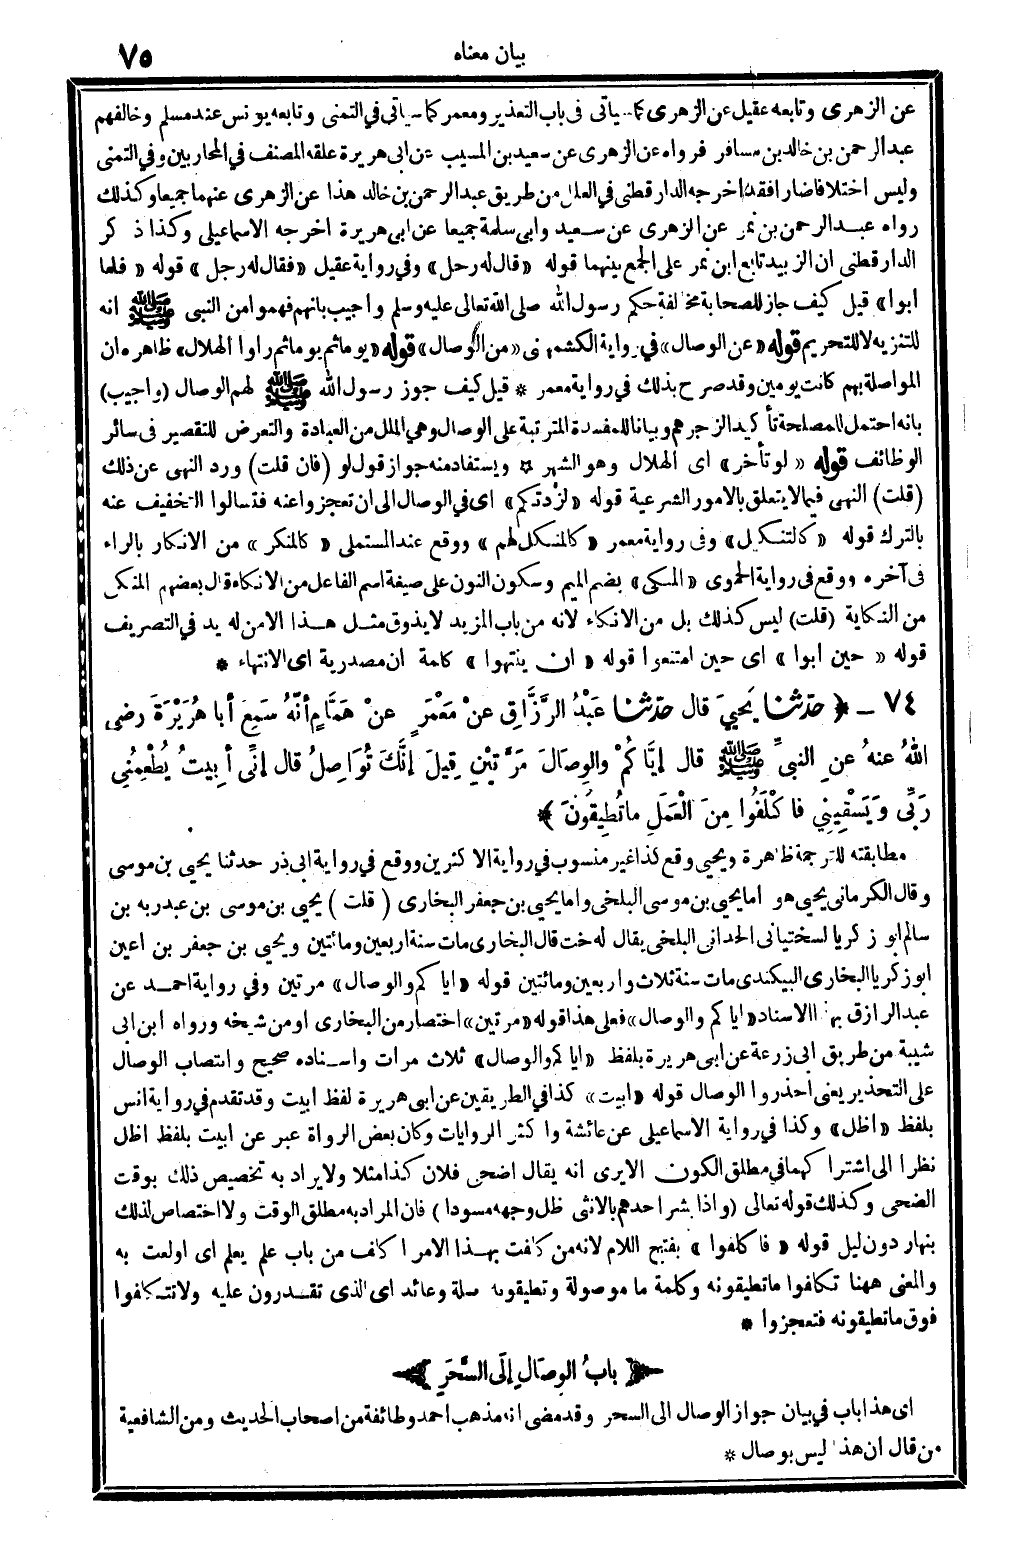 بيان معناه ٧٥
عن الزهرى وتابعه عقيل عن الزهرى كما سياتى فى باب التعذير ومعمر كما سياتى فى التمنى وتابعه يونس عند مسلم وخالفهم
عبد الرحمن بن خالد بن مسافر فرواه عن الزهرى عن سعيد بن المسيب عن ابى هريرة علقه المصنف فى المحاربين وفى التمنى
وليس اختلافا ضارا فقد اخرجه الدار قطنى فى العلل من طريق عبد الرحمن بن خالد هذا عن الزهرى عنهما جميعا وكذلك
رواه عبد الرحمن بن نمر عن الزهرى عن سعيد وابى سلمة جميعا عن ابى هريرة اخرجه الاسماعيلى وكذا ذكر
الدار قطنى ان الزبيد تابع ابن نمر على الجمع بينهما قوله «قال له رجل» وفى رواية عقيل «فقال له رجل» قوله «فلما
ابوا» قيل كيف جاز للصحابة مخالفة حكم رسول الله صلى الله تعالى عليه وسلم واجيب بانهم فهموا من النبى ﷺ انه
للتنزيه لا للتحريم قوله «عن الوصال» فى رواية الكشميهنى «من الوصال» قوله «يوما ثم يوما ثم راوا الهلال» ظاهره ان
المواصلة بهم كانت يومين وقد صرح بذلك فى رواية معمر * قيل كيف جوز رسول الله ﷺ لهم الوصال (واجيب)
بانه احتمل للمصلحة تأكيد الزجرهم وبيانا للمفسدة المترتبة على الوصال وهى الملل من العبادة والتعرض للتقصير فى سائر
الوظائف قوله «لو تأخر» اى الهلال وهو الشهر * ويستفاد منه جواز قول لو (فان قلت) ورد النهى عن ذلك
(قلت) النهى فيما لا يتعلق بالامور الشرعية قوله «لزدتكم» اى فى الوصال الى ان تعجزوا عنه فتسالوا التخفيف عنه
بالترك قوله «كالتنكيل» وفى رواية معمر «كالمنكل لهم» ووقع عند المستملى «كالمنكر» من الانكار بالراء
فى آخره ووقع فى رواية الحموى «المنكى» بضم الميم وسكون النون على صيغة اسم الفاعل من الانكاء قال بعضهم المنكى
من النكاية (قلت) ليس كذلك بل من الانكاء لانه من باب المزيد لا يذوق مثل هذا الا من له يد فى التصريف
قوله «حين ابوا» اى حين امتنعوا قوله «ان ينتهوا» كلمة ان مصدرية اى الانتهاء *
٧٤ ــ ﴿ حَدَّثنا يَحْيىَ قال حَدَّثنا عَبْدُ الرَّزَّاقِ عنْ مَعْمَرٍ عنْ هَمَّامٍ أنَّهُ سَمِعَ أبا هُرَيْرَةَ رضى
اللهُ عنهُ عنِ النبىِّ ﷺ قال إيَّاكُمْ والوِصالَ مَرَّتَيْنِ قِيلَ إنَّكَ تُوَاصِلُ قال إنِّى أبِيتُ يُطْعِمُنِي
رَبِّى وَيَسْقِينِي فاكْلَفُوا مِنَ الْعَمَلِ ما تُطِيقُونَ ﴾
مطابقته للترجمة ظاهرة ويحيى وقع كذا غير منسوب فى رواية الاكثرين ووقع فى رواية ابى ذر حدثنا يحيى بن موسى
وقال الكرمانى يحيى هو اما يحيى بن موسى البلخى واما يحيى بن جعفر البخارى (قلت) يحيى بن موسى بن عبد ربه بن
سالم ابو زكريا السختيانى الحدانى البلخى يقال له خت قال البخارى مات سنة اربعين ومائتين ويحيى بن جعفر بن اعين
ابو زكريا البخارى البيكندى مات سنة ثلاث واربعين ومائتين قوله «اياكم والوصال» مرتين وفى رواية احمد عن
عبد الرازق بهذا الاسناد «اياكم والوصال» فعلى هذا قوله «مرتين» اختصار من البخارى او من شيخه ورواه ابن ابى
شيبة من طريق ابى زرعة عن ابى هريرة بلفظ «اياكم والوصال» ثلاث مرات واسناده صحيح وانتصاب الوصال
على التحذير يعنى احذروا الوصال قوله «ابيت» كذا فى الطريقين عن ابى هريرة لفظ ابيت وقد تقدم فى رواية انس
بلفظ «اظل» وكذا فى رواية الاسماعيلى عن عائشة واكثر الروايات وكان بعض الرواة عبر عن ابيت بلفظ اظل
نظرا الى اشتراكهما فى مطلق الكون الا يرى انه يقال اضحى فلان كذا مثلا ولا يراد به تخصيص ذلك بوقت
الضحى وكذلك قوله تعالى (واذا بشر احدهم بالانثى ظل وجهه مسودا) فان المراد به مطلق الوقت ولا اختصاص لذلك
بنهار دون ليل قوله «فاكلفوا» بفتح اللام لانه من كلفت بهذا الامر اكلف من باب علم يعلم اى اولعت به
والمعنى ههنا تكلفوا ما تطيقونه وكلمة ما موصولة وتطيقونه صلة وعائد اى الذى تقدرون عليه ولا تتكلفوا
فوق ما تطيقونه فتعجزوا *
﴿ بابُ الوِصالِ إلَى السَّحَرِ ﴾
اى هذا باب فى بيان جواز الوصال الى السحر وقد مضى انه مذهب احمد وطائفة من اصحاب الحديث ومن الشافعية
من قال ان هذا ليس بوصال *